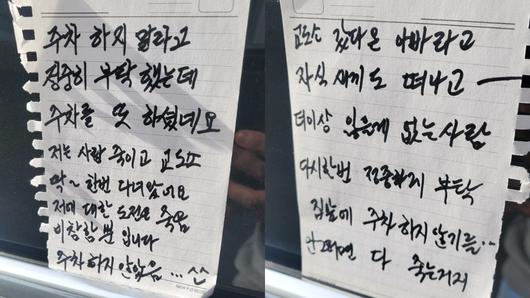 주차 하지 말라고
정중히 부탁 했는데
주차를 또 하셨네요
저는 사람 죽이고 교도소
딱~ 한번 다녀왔어요
저에 대한 도전은 죽음
비참할 뿐 입니다
주차 하지 않았음 ... ^^
교도소 갔다온 아빠라고
자식 새끼도 떠나고 ー
더이상 잃을게 없는사람
다시한번 정중하게 부탁
집앞에 주차 하지 않기를..
안그러면 다 죽는거지